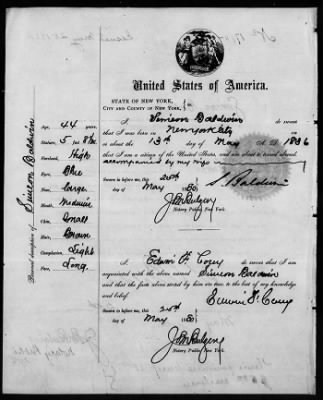 United States of America.
STATE OF NEW YORK,
CITY AND COUNTY OF NEW YORK,
I Simeon Baldwin do swear
that I was born in New York City
on about the 13th day of May A. D. 1836
that I am a citizen of the United States, and am about to travel abroad
accompanied by my wife
Sworn to before me, this 25th
day of May 1880
S. Baldwin
Notary Public New York.
I Edwin F. Corey do swear that I am
acquainted with the above named Simeon Baldwin
and that the facts above stated by him are true to the best of my knowledge
and belief.
Edwin F. Corey
Sworn to before me, this 25th
day of May 1880
Notary Public New York.
Personal description of Simeon Baldwin
Age, 44 years,
Stature, 5 feet
Forehead, High
Eyes, Blue
Nose, Large
Mouth, Medium
Chin, Small
Hair, Brown
Complexion, Light
Face, Long.